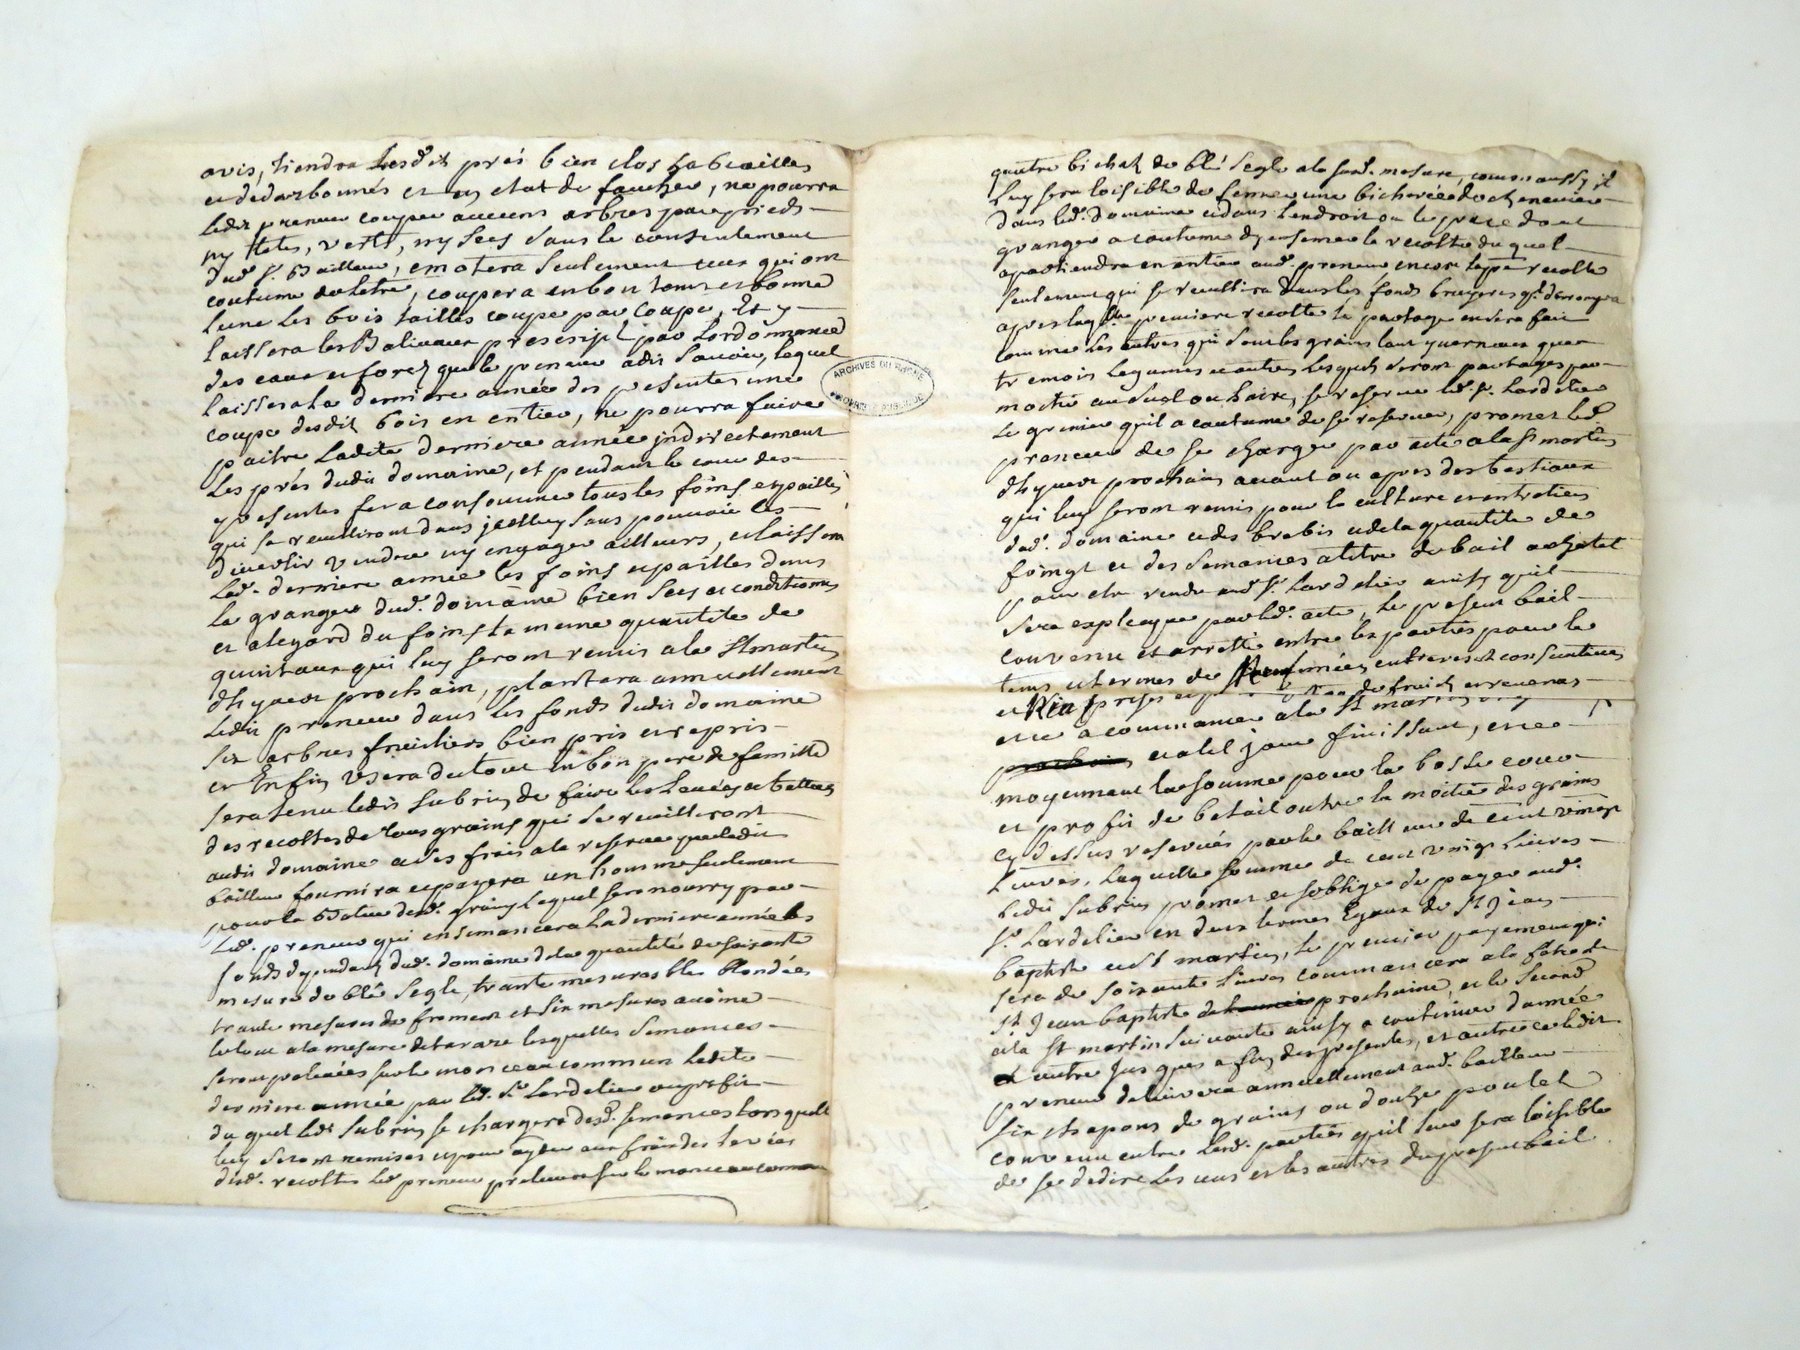 avis, tiendra lesdit prés bien clos
et dedarbounés et en etat de faucher, ne pourra
ledit preneur couper aucuns arbres par pieds
ny tetes, verts, ny secs sans le consentement
dud. sr. Bailleur, emotera seulement ceux qui ont
coutume de letre, coupera en bon tems et bonne
lune les bois taillés coupe par coupe, Et y
laissera les Baliveaux prescript par Lordonnance
des eaux et foretz que le preneur a dit savoir, lequel
laissera la derniere année des presentes une
coupe desdits bois en entier, ne pourra faire
paitre Ladite derniere année indirectement
les prés dudit domaine, et pendant le cour des
presentes fera consommer tous les foins et pailles
qui se reveulliront dans jcelluy sans pouvoir les
divertir vendre ny engager ailleurs, et laissera
Led. derniere année les foins et pailles dans
la granger dud. domaine bien secs et conditionés
et alegard du foins la meme quantité de
quintaux qui luy seront remis a la St martin
dhyver prochain, plantera annuellement
ledit preneur dans les fonds dudit domaine
six arbres fruitiers bien pris et repris
et Enfin usera du tout en bon pere de famille
sera tenu ledit Subrin de faire les levées et battues
des recoltes de tous grains qui se reculliront
audit domaine a ses frais a la reserve que ledit
bailleur fournira et payera un homme seulement
pour la Batue desd. grains lequel sera nourry par
Led. preneur qui ensemancera la derniere année les
fonds dependants dud. domaine de la quantité de soixante
mesure de blé segle, trante mesures bles blondée
trante mesures de froment et six mesures avoine
le tout a la mesure de tarare lesquelles semances
seront prelevées sur le monceau commun ladite
derniere année par led. sr. Lardelier au profit
du quel ledit Subrin se chargera desd. semences lorsquelle
luy seront remises et pour ayder aux frais des levées
desd. recoltes led. preneur prelevera sur le monceau commun
quatre bichetz de blé segle a la susd. mesure, comm aussy il
luy sera loisible de semer une bicherée de chenevier
dans led. domaine et dans l'endroit ou le precedent
granger a coutume dy ensemer la recolte du quel
apartiendra en entier aud. preneur encore la pre recolte
seulement qui se recullira dans les fonds bruyeres
apres laqlle premiere recolte le partage en sera fait
comme les autres qui sont les grains tant yvernaux que
tremois legumes et autres lesquels seront partagés par
moitié au Suel ou haire, se reserve led. sr. Lardelier
le grenier quil a coutume de se reserver, promet led.
preneur de se charger par acte a la St martin
dhyver prochain avant ou apres des bestiaux
qui luy seront remis pour la culture et entretien
dud. domaine et des brebis et de la quantité de
foings et des semances a titre de bail a cheptel
pour etre rendu aud. sr. Lardelier ainsy quil
sera expliqué par led. acte, le present bail
convenu et arretté entre les parties pour le
tems et termes de Neuf années entieres et consecutives
et Neuf prises et de fruits et revenus
et ce a commancer a la St martin
prochain et a tel jour finissant, et ce
moyennant la somme pour la basse cour
et profit de betail outre la moitié des grains
cy dessus reservés par le bailleur de cent vingt
Livres, laquelle somme de cent vingt livres
ledit Subrin promet et soblige de payer aud.
sr. Lardelier en deux termes Egaux de St Jean
baptiste et St martin, le premier payement qui
sera de soixante livres commancera a la fête de
St Jean baptiste prochaine, et le second
a la St martin suivante ainsy a continuer d'année
et autre jusques a fin des presentes, et outre ce ledit
preneur delivrera annuellement aud. bailleur
six chapons de grains ou douze poulet
convenu entre lesd. parties quil leur sera loisible
de se dedire les uns et les autres du present bail
ARCHIVES DU RHONE